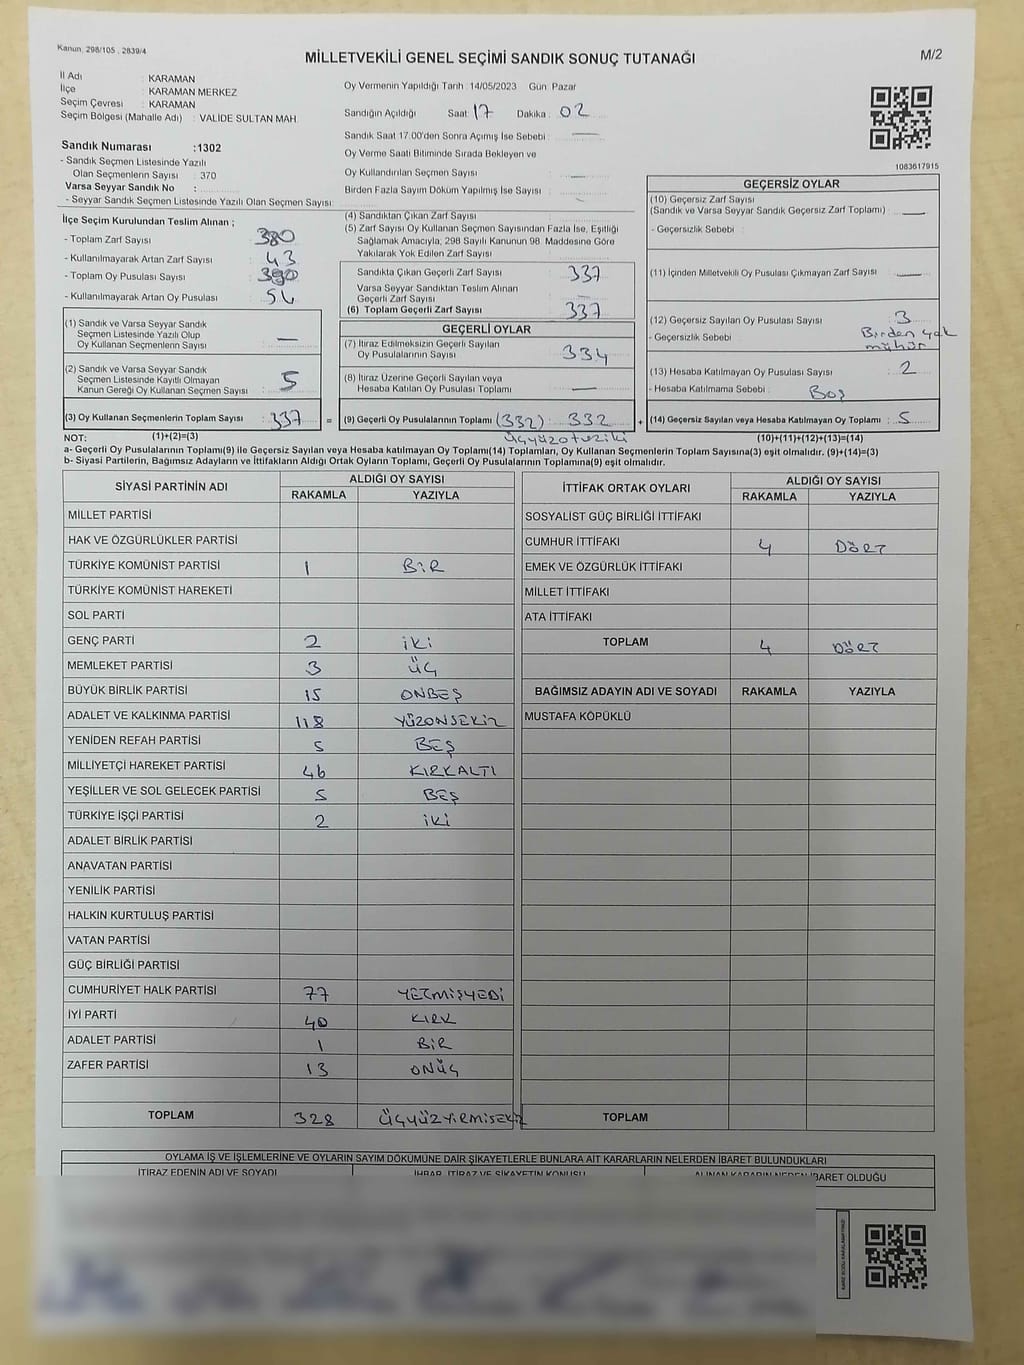 Kanun, 298/105 , 2839/4
MİLLETVEKİLİ GENEL SEÇİMİ SANDIK SONUÇ TUTANAĞI
M/2
İl Adı : KARAMAN
İlçe : KARAMAN MERKEZ
Seçim Çevresi : KARAMAN
Seçim Bölgesi (Mahalle Adı) : VALİDE SULTAN MAH.
Oy Vermenin Yapıldığı Tarih :14/05/2023 Gün: Pazar
Sandığın Açıldığı Saat: 17 Dakika : 02
Sandık Saat 17.00'den Sonra Açımış İse Sebebi : —
Oy Verme Saati Bitiminde Sırada Bekleyen ve
Oy Kullandırılan Seçmen Sayısı : —
Birden Fazla Sayım Döküm Yapılmış İse Sayısı :
1083617915
Sandık Numarası :1302
- Sandık Seçmen Listesinde Yazılı
Olan Seçmenlerin Sayısı : 370
Varsa Seyyar Sandık No :
- Seyyar Sandık Seçmen Listesinde Yazılı Olan Seçmen Sayısı:
İlçe Seçim Kurulundan Teslim Alınan ;
- Toplam Zarf Sayısı : 380
- Kullanılmayarak Artan Zarf Sayısı : 43
- Toplam Oy Pusulası Sayısı : 390
- Kullanılmayarak Artan Oy Pusulası :
(1) Sandık ve Varsa Seyyar Sandık
Seçmen Listesinde Yazılı Olup
Oy Kullanan Seçmenlerin Sayısı : —
(2) Sandık ve Varsa Seyyar Sandık
Seçmen Listesinde Kayıtlı Olmayan
Kanun Gereği Oy Kullanan Seçmen Sayısı : 5
(3) Oy Kullanan Seçmenlerin Toplam Sayısı : 337
(1)+(2)=(3)
(4) Sandıktan Çıkan Zarf Sayısı :
(5) Zarf Sayısı Oy Kullanan Seçmen Sayısından Fazla İse, Eşitliği
Sağlamak Amacıyla; 298 Sayılı Kanunun 98. Maddesine Göre
Yakılarak Yok Edilen Zarf Sayısı :
Sandıkta Çıkan Geçerli Zarf Sayısı : 337
Varsa Seyyar Sandıktan Teslim Alınan
Geçerli Zarf Sayısı :
(6) Toplam Geçerli Zarf Sayısı : 337
GEÇERLİ OYLAR
(7) İtiraz Edilmeksizin Geçerli Sayılan
Oy Pusulalarının Sayısı : 334
(8) İtiraz Üzerine Geçerli Sayılan veya
Hesaba Katılan Oy Pusulası Toplamı : —
= (9) Geçerli Oy Pusulalarının Toplamı (332) : 332 +
Üçyüzotuziki
GEÇERSİZ OYLAR
(10) Geçersiz Zarf Sayısı
(Sandık ve Varsa Seyyar Sandık Geçersiz Zarf Toplamı) : —
- Geçersizlik Sebebi :
(11) İçinden Milletvekili Oy Pusulası Çıkmayan Zarf Sayısı : —
(12) Geçersiz Sayılan Oy Pusulası Sayısı : 3
- Geçersizlik Sebebi : Birden çok
mühür
(13) Hesaba Katılmayan Oy Pusulası Sayısı : 2
- Hesaba Katılmama Sebebi : Boş
(14) Geçersiz Sayılan veya Hesaba Katılmayan Oy Toplamı : 5
(10)+(11)+(12)+(13)=(14)
NOT:
a- Geçerli Oy Pusulalarının Toplamı(9) ile Geçersiz Sayılan veya Hesaba katılmayan Oy Toplamı(14) Toplamları, Oy Kullanan Seçmenlerin Toplam Sayısına(3) eşit olmalıdır. (9)+(14)=(3)
b- Siyasi Partilerin, Bağımsız Adayların ve İttifakların Aldığı Ortak Oyların Toplamı, Geçerli Oy Pusulalarının Toplamına(9) eşit olmalıdır.
SİYASİ PARTİNİN ADI ALDIĞI OY SAYISI
RAKAMLA YAZIYLA
MİLLET PARTİSİ
HAK VE ÖZGÜRLÜKLER PARTİSİ
TÜRKİYE KOMÜNİST PARTİSİ 1 BİR
TÜRKİYE KOMÜNİST HAREKETİ
SOL PARTİ
GENÇ PARTİ 2 İKİ
MEMLEKET PARTİSİ 3 ÜÇ
BÜYÜK BİRLİK PARTİSİ 15 ONBEŞ
ADALET VE KALKINMA PARTİSİ 118 YÜZONSEKİZ
YENİDEN REFAH PARTİSİ 5 BEŞ
MİLLİYETÇİ HAREKET PARTİSİ 46 KIRKALTI
YEŞİLLER VE SOL GELECEK PARTİSİ 5 BEŞ
TÜRKİYE İŞÇİ PARTİSİ 2 İKİ
ADALET BİRLİK PARTİSİ
ANAVATAN PARTİSİ
YENİLİK PARTİSİ
HALKIN KURTULUŞ PARTİSİ
VATAN PARTİSİ
GÜÇ BİRLİĞİ PARTİSİ
CUMHURİYET HALK PARTİSİ 77 YETMİŞYEDİ
İYİ PARTİ 40 KIRK
ADALET PARTİSİ 1 BİR
ZAFER PARTİSİ 13 ONÜÇ
TOPLAM 328 ÜÇYÜZYİRMİSEKİZ
İTTİFAK ORTAK OYLARI ALDIĞI OY SAYISI
RAKAMLA YAZIYLA
SOSYALİST GÜÇ BİRLİĞİ İTTİFAKI
CUMHUR İTTİFAKI 4 DÖRT
EMEK VE ÖZGÜRLÜK İTTİFAKI
MİLLET İTTİFAKI
ATA İTTİFAKI
TOPLAM 4 DÖRT
BAĞIMSIZ ADAYIN ADI VE SOYADI RAKAMLA YAZIYLA
MUSTAFA KÖPÜKLÜ
TOPLAM
OYLAMA İŞ VE İŞLEMLERİNE VE OYLARIN SAYIM DÖKÜMÜNE DAİR ŞİKAYETLERLE BUNLARA AİT KARARLARIN NELERDEN İBARET BULUNDUKLARI
İTİRAZ EDENİN ADI VE SOYADI İHBAR, İTİRAZ VE ŞİKAYETİN KONUSU ALINAN KARARIN NEDEN İBARET OLDUĞU